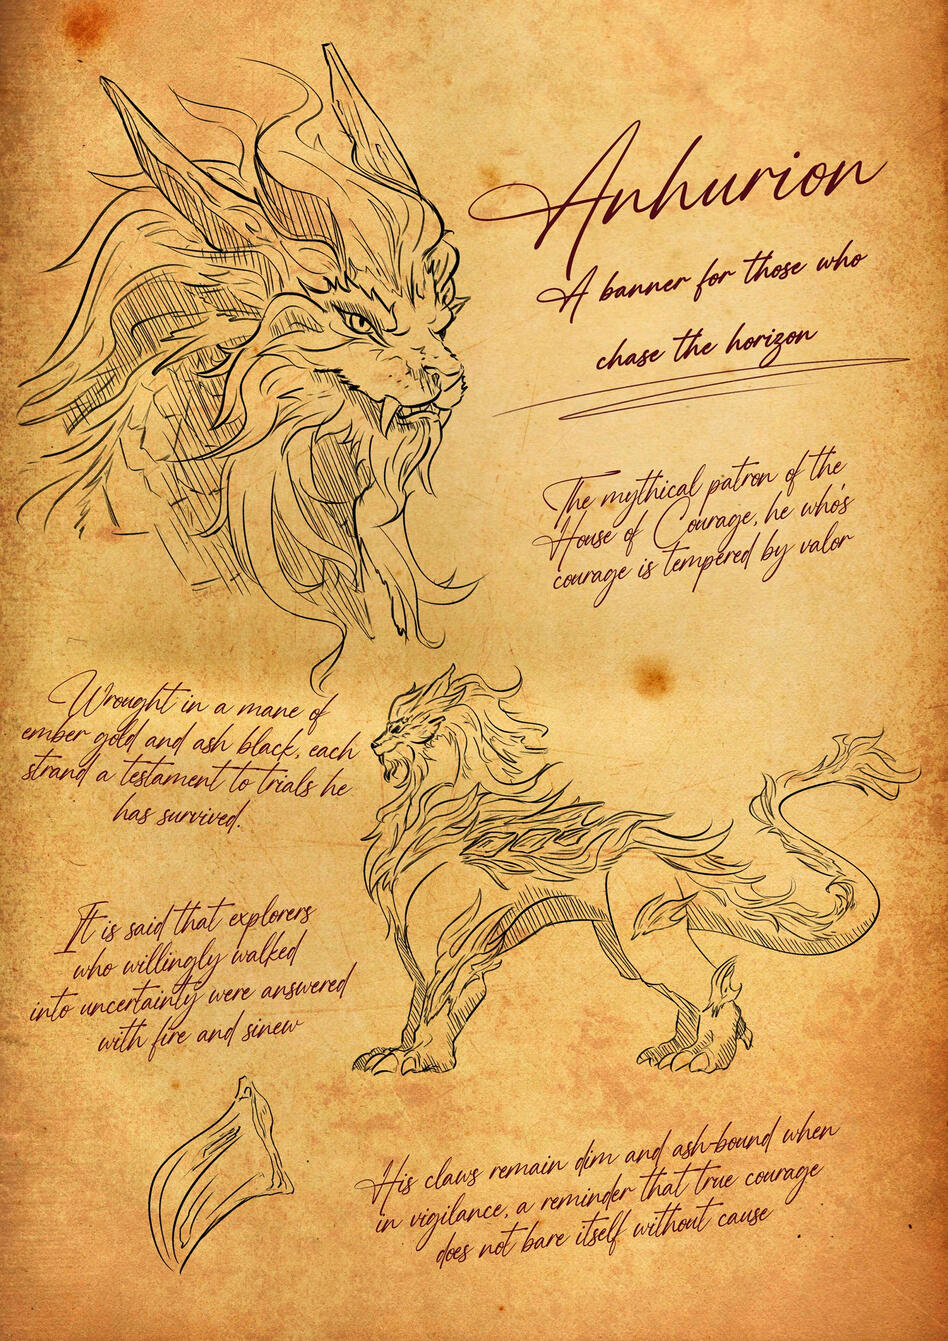 Anhurion
A banner for those who
chase the horizon
The mythical patron of the
House of Courage, he who's
courage is tempered by valor
Wrought in a mane of
ember gold and ash black, each
strand a testament to trials he
has survived.
It is said that explorers
who willingly walked
into uncertainty were answered
with fire and sinew
His claws remain dim and ash-bound when
in vigilance, a reminder that true courage
does not bare itself without cause